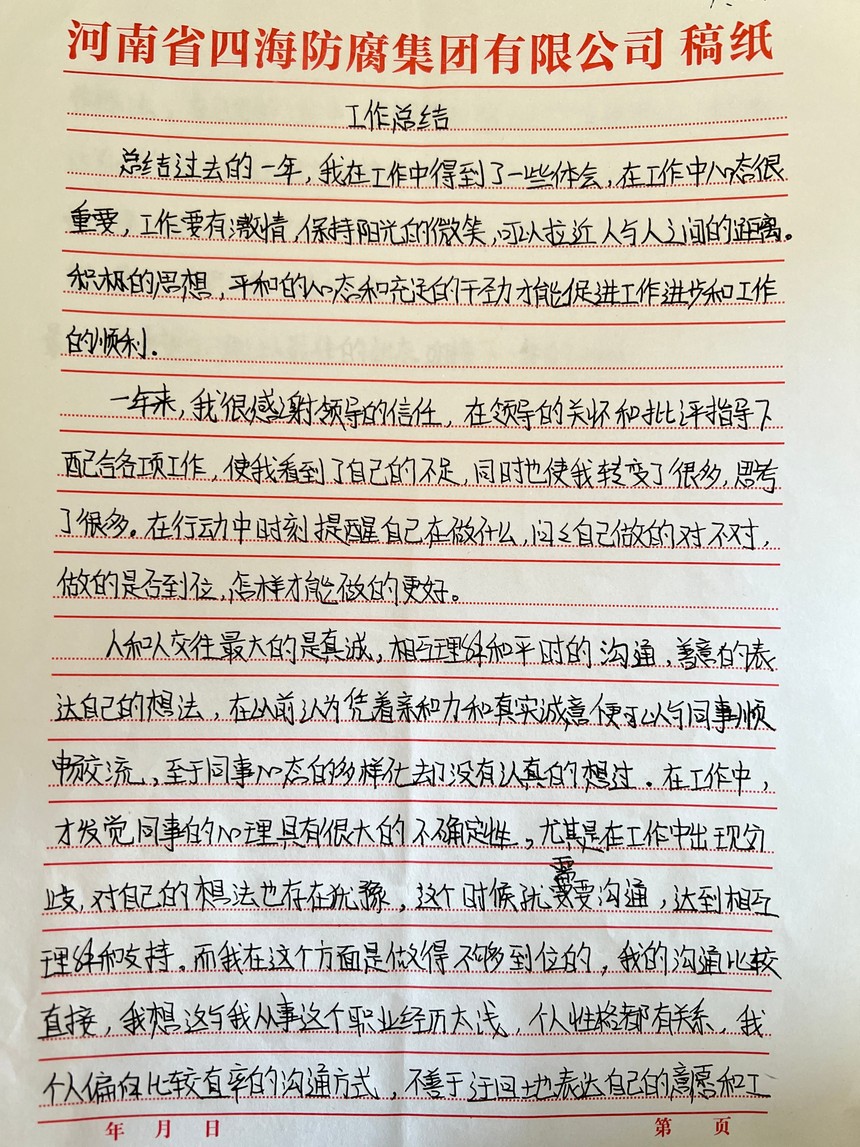 河南省四海防腐集团有限公司 稿纸
工作总结
总结过去的一年，我在工作中得到了一些体会，在工作中心态很
重要，工作要有激情，保持阳光的微笑，可以拉近人与人之间的距离。
积极的思想，平和的心态和充足的干劲才能促进工作进步和工作
的顺利。
一年来，我很感谢领导的信任，在领导的关怀和批评指导下
配合各项工作，使我看到了自己的不足，同时也使我转变了很多，思考
了很多。在行动中时刻提醒自己在做什么，问问自己做的对不对，
做的是否到位，怎样才能做的更好。
人和人交往最大的是真诚，相互理解和平时的沟通，善意的表
达自己的想法，在以前认为凭着亲和力和真实诚意便可以与同事顺
畅交流，至于同事心态的多样化却没有认真的想过。在工作中，
才发觉同事的心理具有很大的不确定性，尤其是在工作中出现分
歧，对自己的想法也存在犹豫，这个时候就需要沟通，达到相互
理解和支持。而我在这个方面是做得不够到位的，我的沟通比较
直接，我想这与我从事这个职业经历太浅，个人性格都有关系，我
个人偏向比较直率的沟通方式，不善于迂回地表达自己的意愿和工
年 月 日 第 页